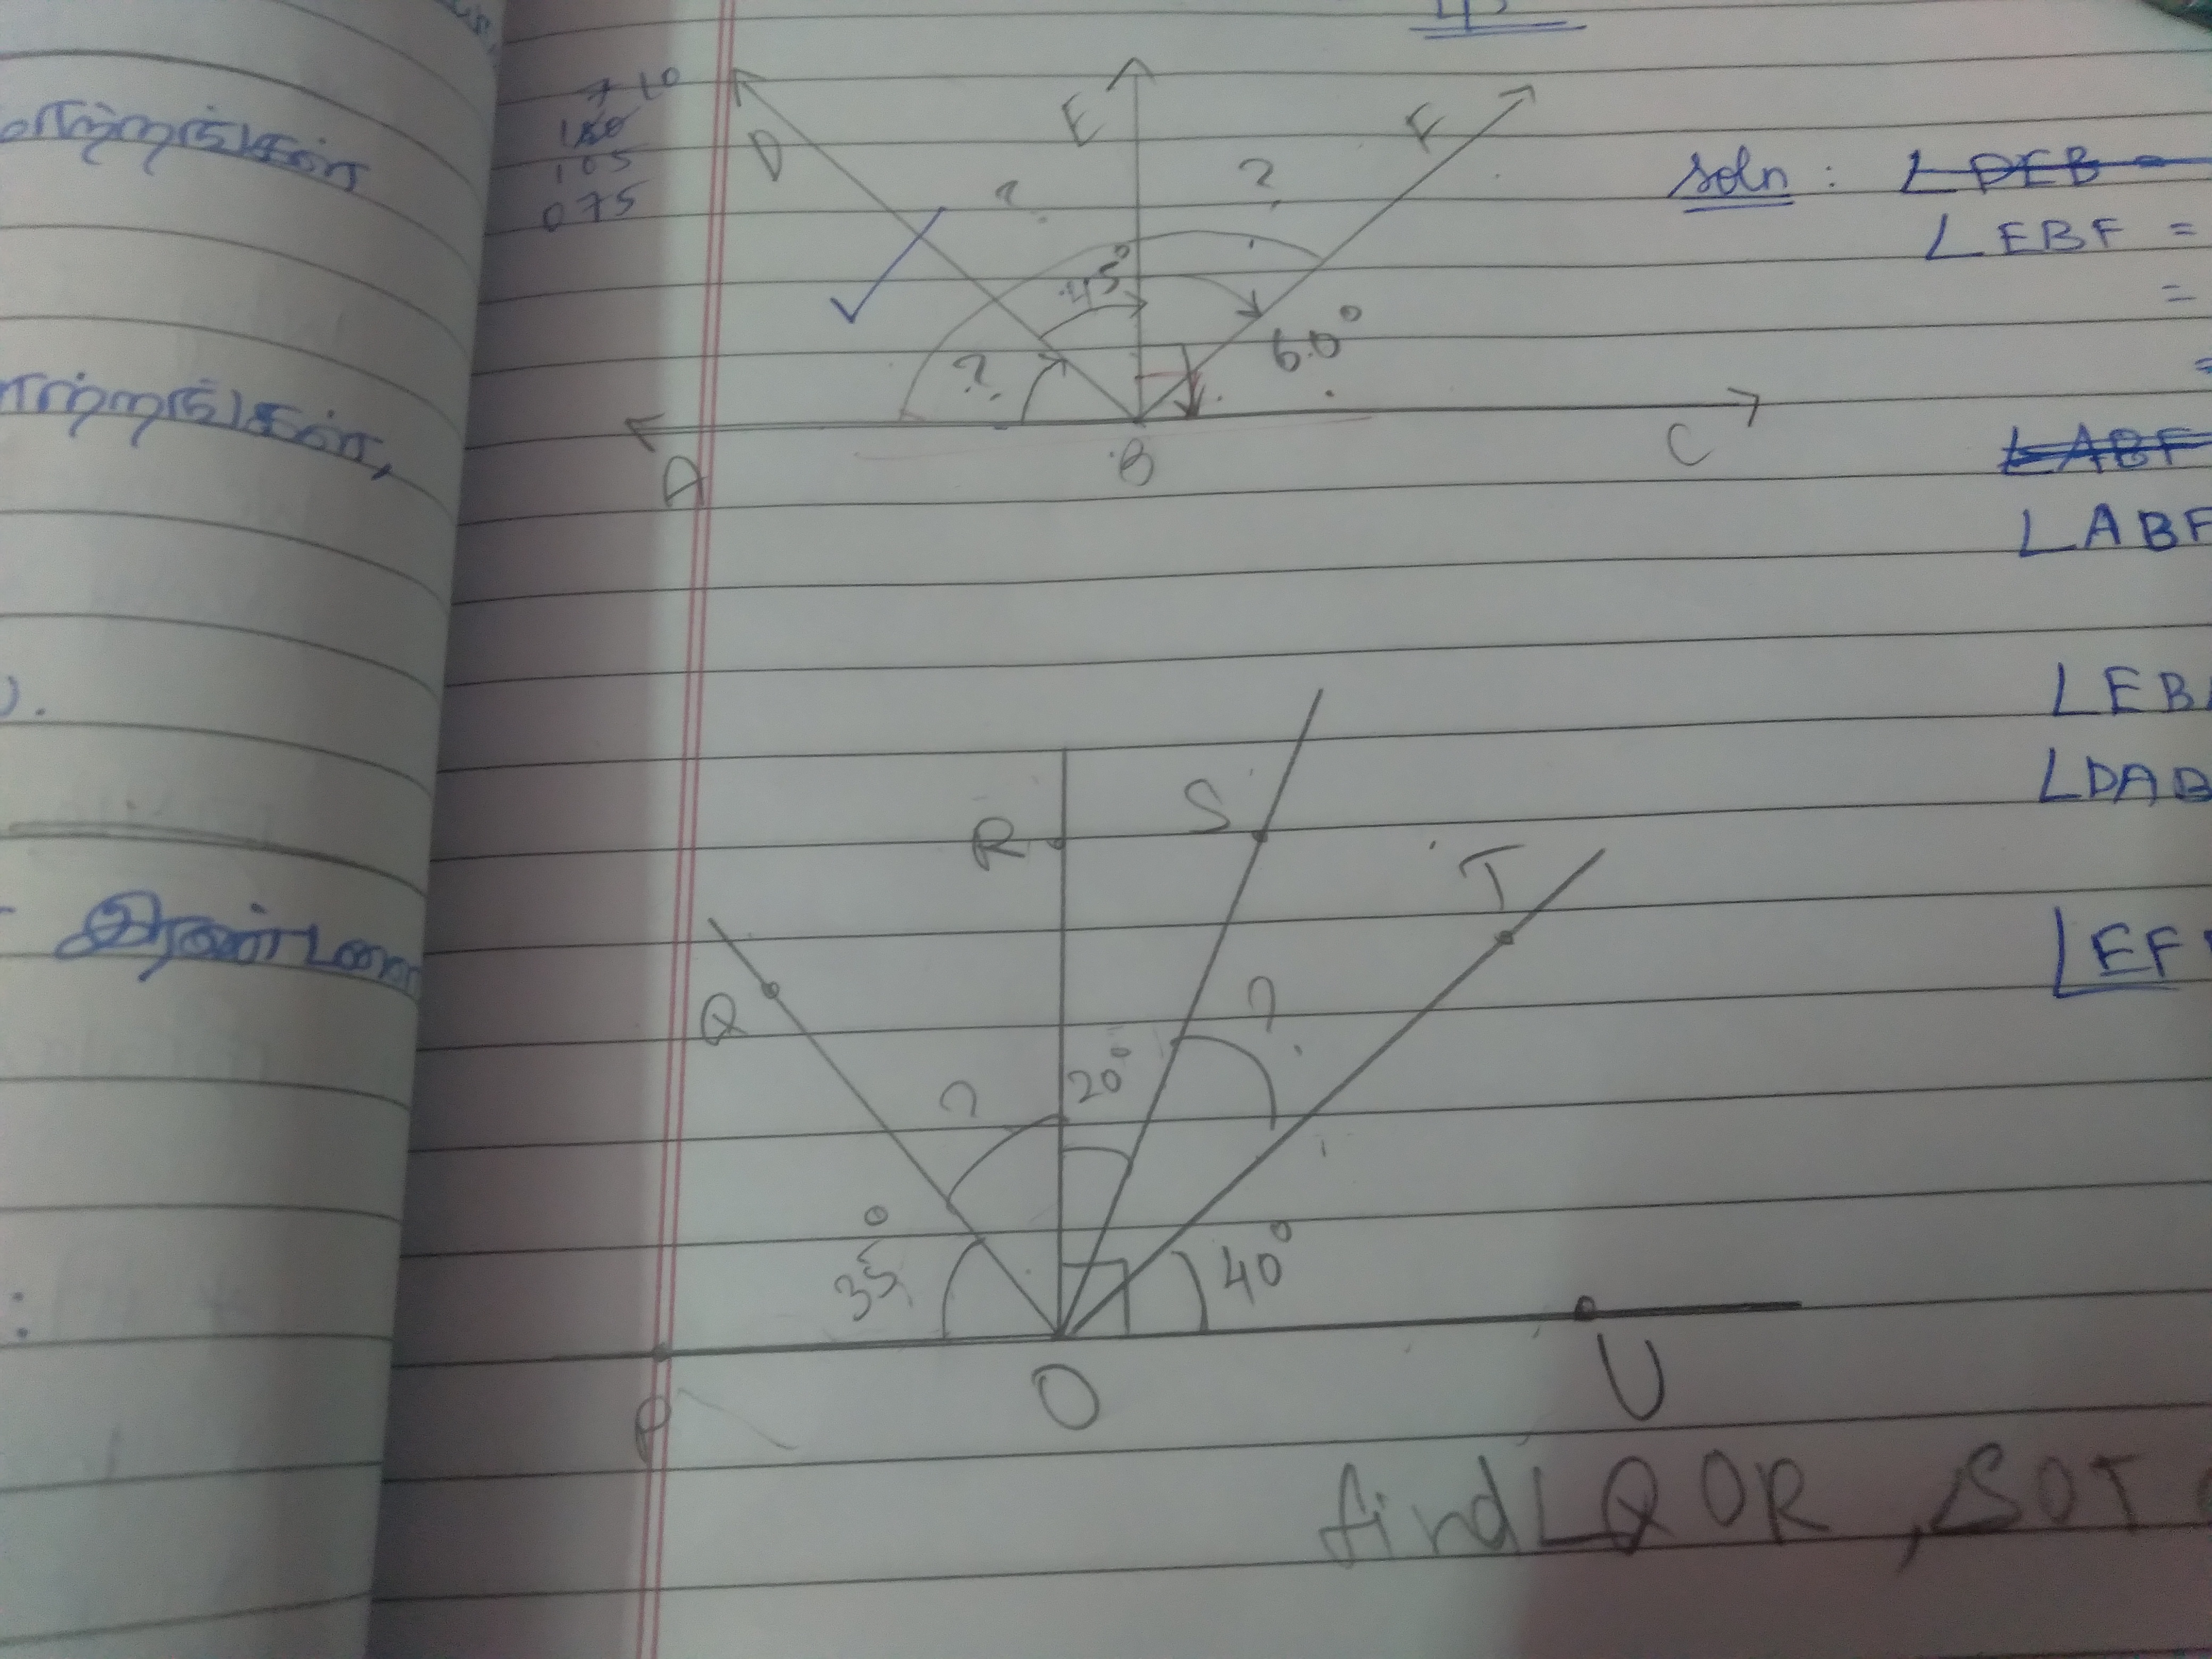 மாற்றங்கள்
மாற்றங்கள்,
).
- இரண்டனை
:
7 10
180
105
075
D
E
F
?
?
45°
?
60°
A
B
C
soln : ∠DEB =
∠EBF =
=
=
∠ABF
∠ABF
∠EB
∠DAB
∠EF
R
S
T
Q
?
20°
?
35°
40°
P
O
U
find ∠QOR, SOT